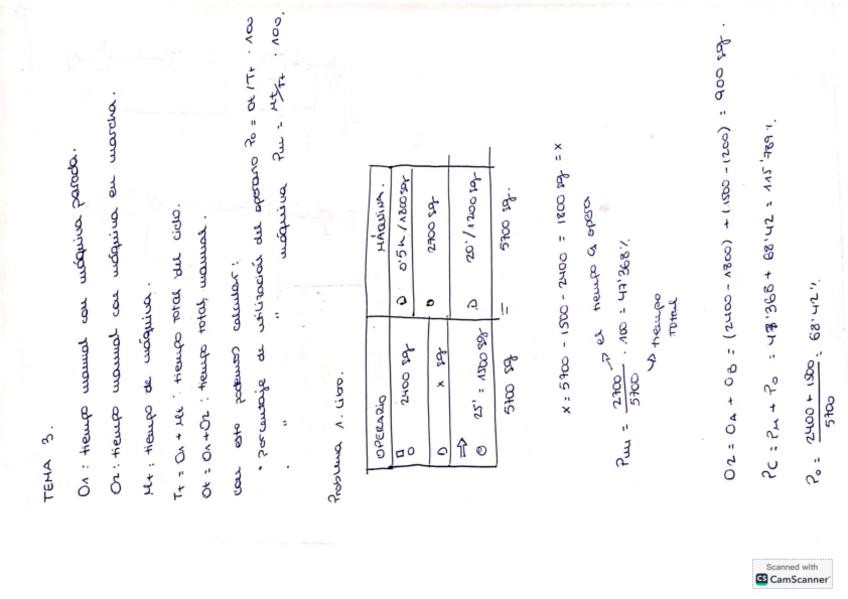 TEMA 3.
O1 : tiempo manual con máquina parada.
O2 : tiempo manual con máquina en marcha.
Mt : tiempo de máquina.
Tt = O1 + Mt : tiempo total del ciclo.
Ot = O1 + O2 : tiempo total manual.
con esto podemos calcular:
· Porcentaje de utilización del operario Po = Ot / Tt · 100
· " " " máquina PM = Mt/Tt · 100.
Problema 1. Libro.
OPERARIO MÁQUINA.
2400 sg D 0'5h / 1800 sg
D x sg 2700 sg
⇒ 25' = 1500 sg D 20' / 1200 sg
5700 sg = 5700 sg.
x = 5700 - 1500 - 2400 = 1800 sg = x
PM = 2700 / 5700 · 100 = 47'368 %
→ el tiempo q opera
↳ tiempo total
O2 = OA + OB = (2400 - 1800) + (1500 - 1200) = 900 sg.
PC = PM + Po = 47'368 + 68'42 = 115'789 %.
Po = 2400 + 1500 / 5700 = 68'42 %
Scanned with
CS CamScanner